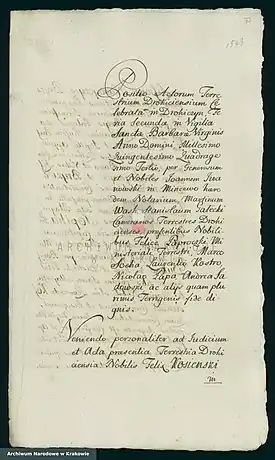 1543
Positio Actorum Terre
strium Drohiciensium Ce
lebrata in Drohiczyn, Fe
ria Secunda in Vigilia
Sancta Barbara Virginis
Anno Domini, Millesimo
Quingentesimo Quadrage
simo Tertio, per Generosum
et Nobiles Joannem
nowski in Mincewo hæ
redem Notarium, Martinum
Wask, Stanislaum Salecki
Camerarios Terrestres Drohi
ciensis præsentibus Nobili
bus Felice Paprocki Mi
nisteriali Terrestri, Marco
Soska, Laurentio Kostro,
Nicolao Papa, Andrea Sa
dowski ac alijs quam plu
rimis Terrigenis fide di
gnis.
Veniendo personaliter ad Judicium
et Acta præsentia Terrestria Drohi
ciensia Nobilis Felix Kosienski
m
Archiwum Narodowe w Krakowie